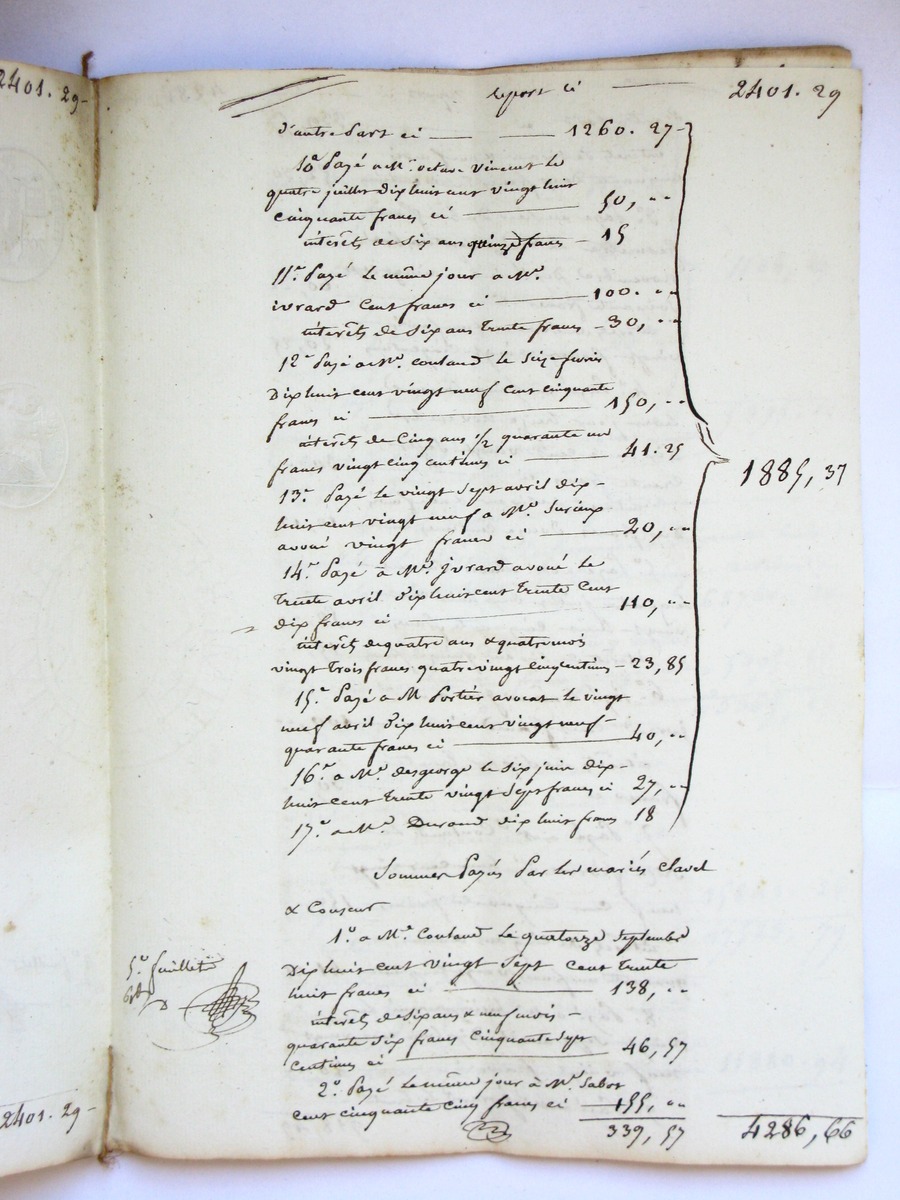 2401. 29-
report ci 2401. 29
d'autre Part ci 1260. 27-
10º Payé a Mr. octave vincent le
quatre juillet dix huit cent vingt huit
cinquante francs ci 50, ,,
intérêts de Six ans quinze francs - 15
11º. Payé le même jour a Me.
ivrard Cent francs ci 100. ,,
intérêts de Six ans trente francs - 30, ,,
12º Payé a Me. contand le Seize fevrier
Dix huit cent vingt neuf Cent cinquante
francs ci 150, ,,
intérêts de Cinq ans 1/2 quarante un
francs vingt cinq centimes ci 41. 25
1885, 37
13º. Payé le vingt Sept avril dix-
huit cent vingt neuf a Me Surieux
avoué vingt francs ci 20, ,,
14º. Payé à Me. jvrard avoué le
trente avril dix huit cent trente Cent
dix francs ci 110, ,,
intérêts de quatre ans & quatre mois
vingt trois francs quatre vingt cinq centimes - 23, 85
15º. Payé a M Portier avocat le vingt
neuf avril dix huit cent vingt neuf-
quarante francs ci 40, ,,
16º. a Me. desgeorge le Six juin dix-
huit cent trente vingt Sept francs ci 27, ,,
17º. a Me. Durand dix huit francs 18
Sommes Payés Par les mariés Clavel
& Consort
1º. a Me. Contand le quatorze Septembre
5º. fuillet
Dix huit cent vingt Sept cent trente
huit francs ci 138, ,,
intérêts de Six ans & neuf mois -
quarante Six francs Cinquante Sept
centimes ci 46, 57
2º. Payé le même jour à Me. Sabot
cent cinquante cinq francs ci 155, ,,
2401. 29-
339, 57 4286, 66